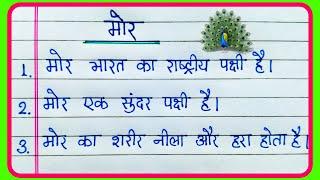 मोर
1. मोर भारत का राष्ट्रीय पक्षी है।
2. मोर एक सुंदर पक्षी है।
3. मोर का शरीर नीला और हरा होता है।